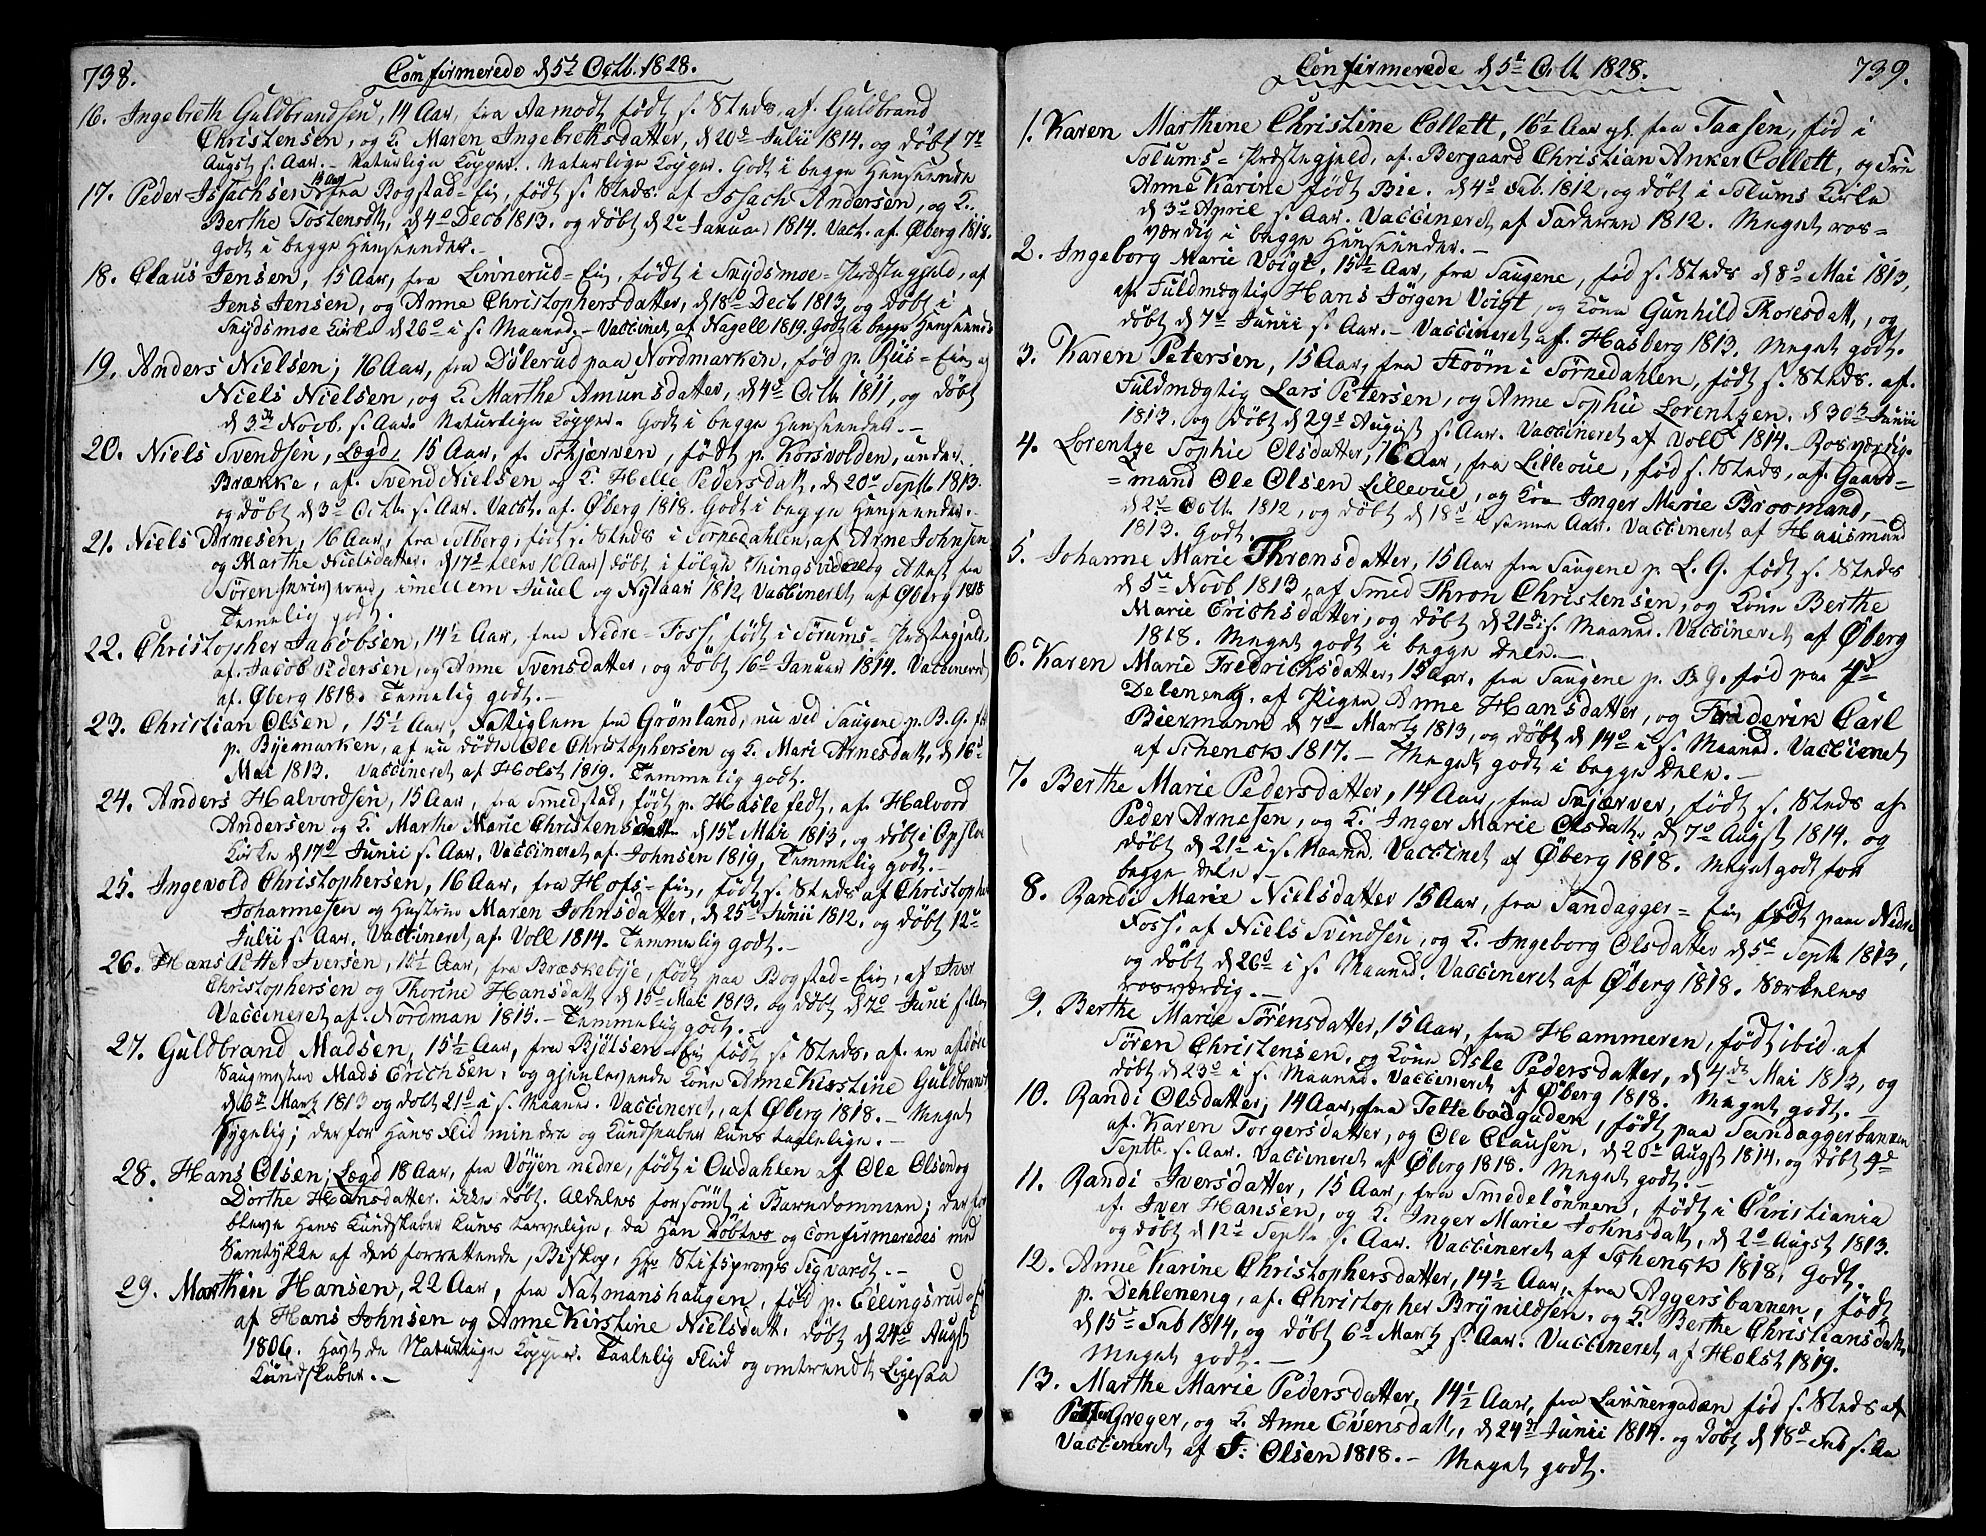 738.
Confirmerede d 5te Octb. 1828.
16. Ingebreth Guldbrandsen, 14 Aar, fra Aamodt, født s. Steds, af Guldbrand
Christensen, og K. Maren Ingebrethsdatter, d 20de Julii 1814. og døbt 7de
Augst s. Aar. – Naturlige Kopper. Naturlige Kopper. Godt i begge Henseende
17. Peder Issachsen 14 Aar fra Bogstad-Eie, født s. Steds. af Issach Andersen, og K.
Berthe Tostensdtr, d 4de Decb 1813. og døbt d 2de Januar 1814. Vact. af Øberg 1818.
godt i begge Henseender. –
18. Claus Jensen, 15 Aar, fra Linnerud-Eie, født i Præstegield, af
Jens Jensen, og Anne Christophersdatter, d 18de Decb 1813, og døbt i
Kirke d 26de i s. Maaned. – Vaccinet af Nagell 1819. Godt i begge Henseende
19. Anders Nielsen; 16 Aar, fra Dølerud paa Nordmarken, fød p. Biis-Eie, af
Niels Nielsen, og K. Marthe Amunsdatter, d 4de Octb 1811, og døbt
d 3die Novb. s. Aar. Naturlige Kopper. Godt i begge Henseender. –
20. Niels Svendsen, Lægd, 15 Aar, f. Skjærven, født p. Korsvolden, under
Brække, af Svend Nielsen og K. Helle Pedersdatt, d 20de Septb 1813.
og døbt d 3de Octb. s. Aar. Vact. af Øberg 1818. Godt i begge Henseender. –
21. Niels Arnesen, 16 Aar, fra Solberg, født s. Steds i Sørnedahlen, af Arne Johnsen
og Marthe Nielsdatter. d 17de eller 16 Aar) døbt i følge Thingsvidne og Attest fra
Sören imellem Juuel og Nylaar 1812, Vaccineret af Øberg 1818
Temelig godt.
22. Christopher Jacobsen, 14½ Aar, fra Nedre-Foss, født i Sørums-Præstegjeld,
af Jacob Pedersen, og Anne Svensdatter, og døbt 16de Januar 1814. Vaccineret
af Øberg 1818. Temelig godt. –
23. Christian Olsen, 15½ Aar, Fattiglem fra Grönland, nu ved Saugene p. B.G. fød
p. Bjemarken, af nu døde Ole Christophersen og K. Mari Arnesdatt, d 16de
Mai 1813. Vaccineret af Holst 1819. Temmelig godt.
24. Anders Halvordsen, 15 Aar, fra Smedstad, født p. Hasle født, af Halvord
Andersen og K. Marthe Marie Christensdatt d 15de Mai 1813, og døbt i Opslo
Kirke d 17de Junii s. Aar. Vaccineret af Johnsen 1819, Temmelig godt. –
25. Ingevold Christophersen, 16 Aar, fra Hofs-Eie, født s. Steds af Christopher
Johannesen og Hustrue Maren Johnsdatter, d 25de Junii 1812. og døbt 12te
Julii s. Aar. Vaccineret af Voll 1814. Temmelig godt. –
26. Hans Petter Iversen, 15½ Aar, fra Bræskebye, født paa Bogstad-Eie, af Iver
Christophersen og Thorine Hansdatt, d 15de Mai 1813. og døbt d 7de Juni s. Aar
Vaccineret af Nordman 1815. – Temmelig godt. –
27. Guldbrand Madsen, 15½ Aar, fra Bjölsen-Eie født s. Steds, af en afdöde
Saugmester Mads Erichsen, og gjenlevende Kone Anne Kirstine Guldbrands
d 6te Martz 1813 og døbt 21de i s. Maaned. Vaccineret, af Øberg 1818. – Meget
sygelig; derfor Hans Flid mindre og Kundskaber kuns taalelige. –
28. Hans Olsen, Lægd 18 Aar, fra Vøyen nedre, født i Ousdahlen af Ole Olsen og
Dorthe Hansdatter. ikke døbt. Aldeles forsömt i Barndommen; derfor
bleve Hans Kundskaber kuns maadelige, da Han Døbtes og confirmeredes med
Samtykke af dens forrettende, Biskop, Hr. Stiftsprovst Sigvardt. –
29. Marthin Hansen, 22 Aar, fra Natmanshaugen, fød p. Ellingsrud-Eie
af Hans Johnsen og Anne Kirstine Nielsdatt. døbt d 24de Augst
1806. Havt de Naturlige Kopper. Taalelig Flid og omtrendt Ligesaa
Kundskaber. –
739.
Confirmerede d 5te Octb 1828.
1. Karen Marthine Christine Collett, 16½ Aar gl. fra Taasen, fød i
Solums-Præstegjeld, af Bergraad Christian Anker Collett, og Frue
Anne Karine født Bie. d 4de Feb. 1812, og døbt i Solums Kirke
d 3die April s. Aar. Vaccineret af Faderen 1812. Meget ros=
værdig i begge Henseender. –
2. Ingeborg Marie Voigt, 15½ Aar, fra Saugene, fød s. Steds d 8de Mai 1813,
af Fuldmægtig Hans Jörgen Voigt, og Kone Gunhild Thoresdatt, og
døbt d 7de Junii s. Aar. – Vaccineret af Hasberg 1813. Meget godt.
3. Karen Petersen, 15 Aar, fra Stööm i Sörnedahlen, født s. Steds. af
Fuldmægtig Lars Petersen, og Anne Sophie Lorentzen. d 30te Junii
1813. og døbt d 29de August s. Aar. Vaccineret af Voll 1814. – Rosværdig.
4. Lorentze Sophie Olsdatter, 16 Aar, fra Lilleoue, fød s. Steds, af Gaard=
=mand Ole Olsen Lilleoue, og Kone Inger Marie Broomand, –
d 2de Octb. 1812, og døbt d 18de i samme Aar. Vaccineret af Hausmand
1813. Godt.
5. Johanne Marie Thronsdatter, 15 Aar fra Saugene p. L. G. født s. Steds
d 5te Novb 1813, af Smed Thron Christensen, og Kone Berthe
Marie Erichsdatter, og døbt d 21de i s. Maaned. Vaccineret af Øberg
1818. Meget godt i begge Dele. –
6. Karen Marie Fredrichsdatter, 15 Aar, fra Saugene p. B.G. fød paa
Deleneng, af Pigen Anne Hansdatter, og Friderik Carl
Biermann d 7de Martz 1813, og døbt d 14de i s. Maaned. Vaccineret
af Schenck 1817. – Meget godt i begge Dele. –
7. Berthe Marie Pedersdatter, 14 Aar, fra Skjærven, født s. Steds af
Peder Arnesen, og K. Inger Marie Olsdatt, d 7de Augst 1814. og
døbt d 21de i s. Maaned. Vaccinet af Øberg 1818. Meget godt for
begge Dele –
8. Randi Marie Nielsdatter 15 Aar, fra Sandagger-Eie født paa Nedre
Foss, af Niels Svendsen, og K. Ingeborg Olsdatter d 5te Septb 1813,
og døbt d 26de i s. Maaned. Vaccineret af Øberg 1818. Særdeles
rosværdig. –
9. Berthe Marie Sörensdatter, 15 Aar, fra Hammeren, født ibid. af
Sören Christensen, og Kone Asle Pedersdatter, d 4de Mai 1813, og
døbt d 23de i s. Maaned. Vaccineret af Øberg 1818. Meget godt. –
10. Randi Olsdatter, 14 Aar, fra Teltebadgaden, født paa Sandaggerbanen
af Karen Torgersdatter, og Ole Clausen, d 20de Augst 1814. og døbt 4de
Septb. s. Aar. Vaccineret af Øberg 1818. Meget godt. –
11. Randi Iversdatter, 15 Aar, fra Smedelönnen, født i Christiania
af Iver Hansen, og K. Inger Marie Johnsdatt, d 2de Augst 1813.
og døbt d 12te Septb. s. Aar. Vaccineret af Schenck 1818. Godt.
12. Anne Karine Christophersdatter, 14½ Aar, fra Aggersbanen, født
p. Dehleneng, af Christopher Brynildsen, og K. Berthe Christiansdatt,
d 15de Feb 1814, og døbt 6te Martz s. Aar. Vaccineret af Holst 1819.
Meget godt. –
13. Marthe Marie Pedersdatter, 14½ Aar, fra fød s. Steds af
Petter Greger, og K. Anne Evensdatt, d 24de Junii 1814. og døbt d 18de s. Aar
Vaccineret af J. Olsen 1818. – Meget godt.